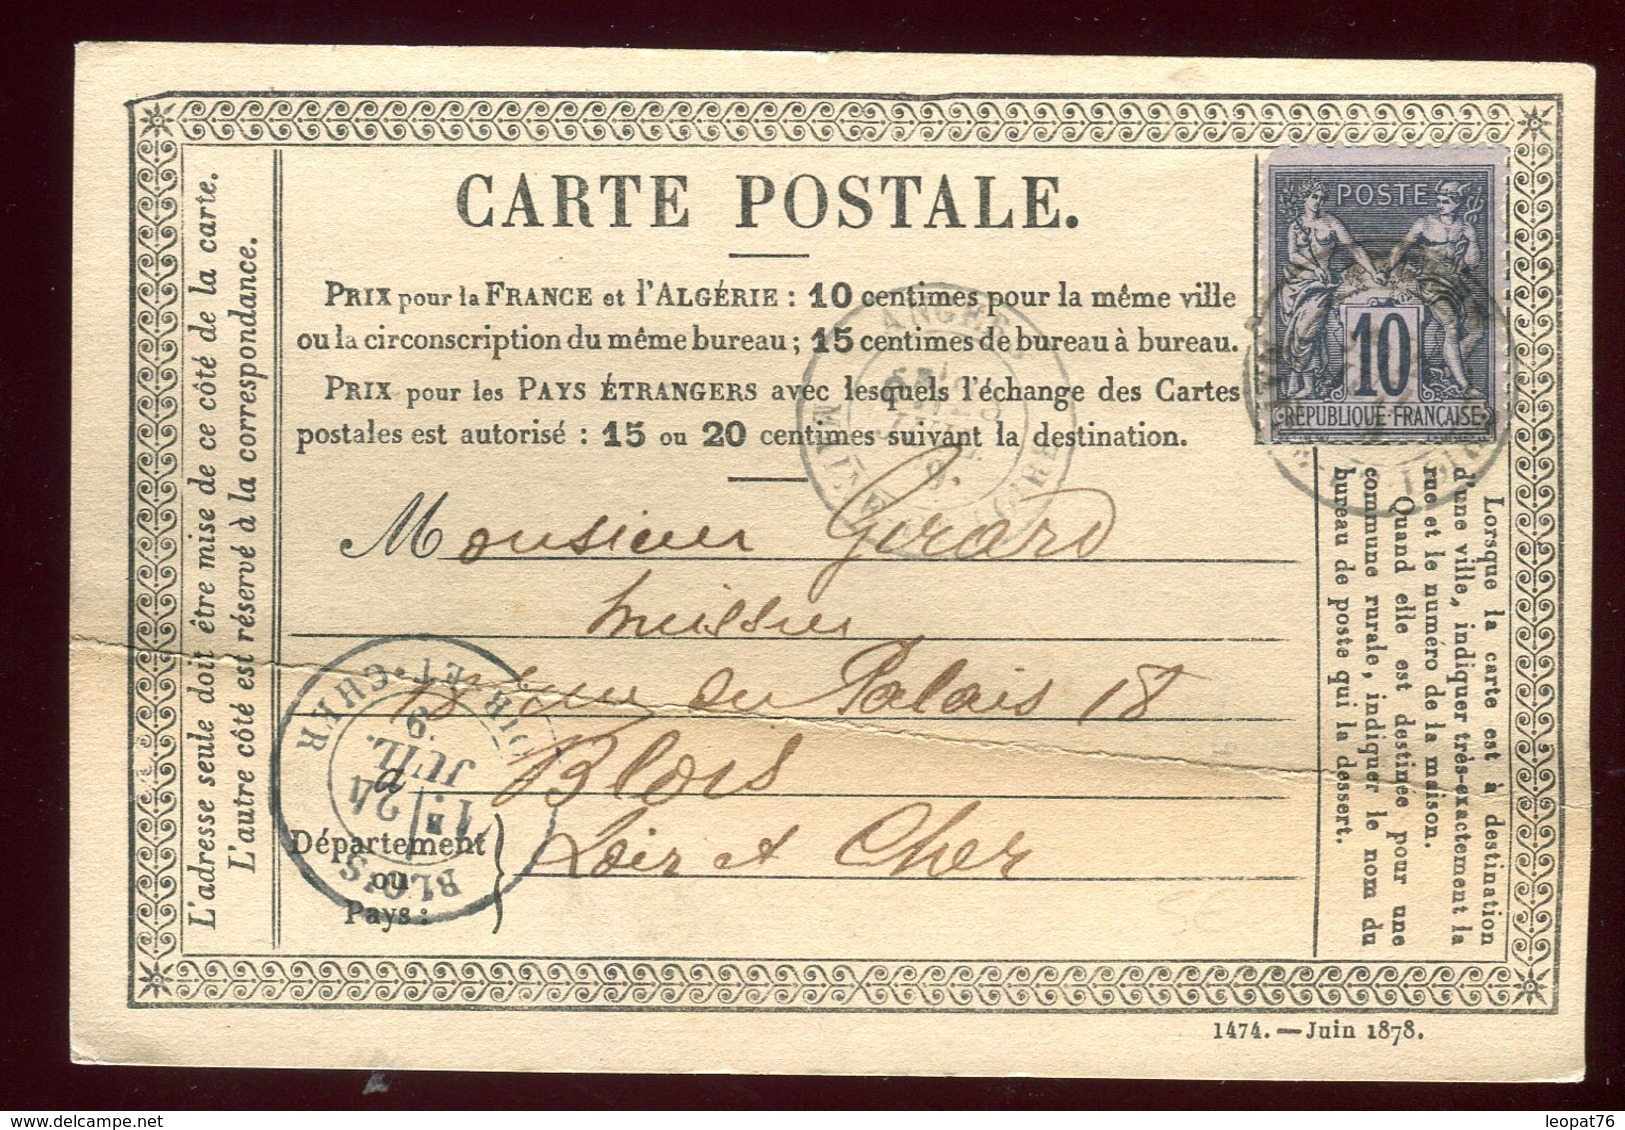 CARTE POSTALE.
PRIX pour la FRANCE et l'ALGÉRIE : 10 centimes pour la même ville
ou la circonscription du même bureau ; 15 centimes de bureau à bureau.
PRIX pour les PAYS ÉTRANGERS avec lesquels l'échange des Cartes
postales est autorisé : 15 ou 20 centimes suivant la destination.
POSTE
10
RÉPUBLIQUE·FRANÇAISE
ANGERS
MAINE
Monsieur Girard
huissier
rue du Palais 18
Blois
Loir et Cher
Département
ou
Pays :
BLOIS
24
JUIL.
LOIR-ET-CHER
L'adresse seule doit être mise de ce côté de la carte.
L'autre côté est réservé à la correspondance.
Lorsque la carte est à destination
d'une ville, indiquer très-exactement la
rue et le numéro de la maison.
Quand elle est destinée pour une
commune rurale, indiquer le nom du
bureau de poste qui la dessert.
1474. — Juin 1878.
leopat76